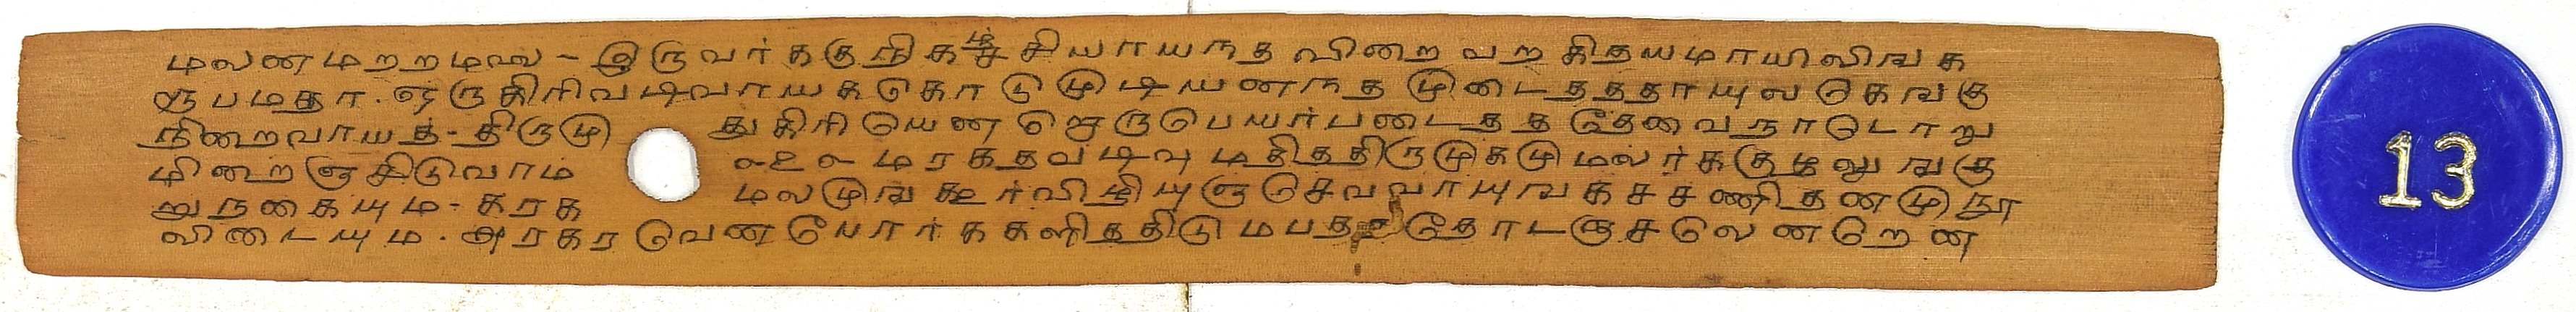 மலணமறறமவ - இருவர்ககுநிகழ்ச்சியாயநத விறை வற கிதயமாயிலிஙக
ரூபமதா. ஏருகிரிவடிவாயகுகொடுமுடியணநத முடைததாயுலகெஙகு
நிறைவாயத - திருமு துகிரியெண ஒருபெயர்படைதததேவநாடொறு
மிறைஞசிடுவாம உஉ மரகதவடிவு மதிததிருமுகமு மலர்ககுழலுஙகு
றுநகையும - கரக மலமுஙகூர்விழியுஞசெவவாயுஙகசசணிதனமுநூ
விடையும. அரகர வெணபோர்ககளிததிடுமபத தோடஞசலெனறெண
13